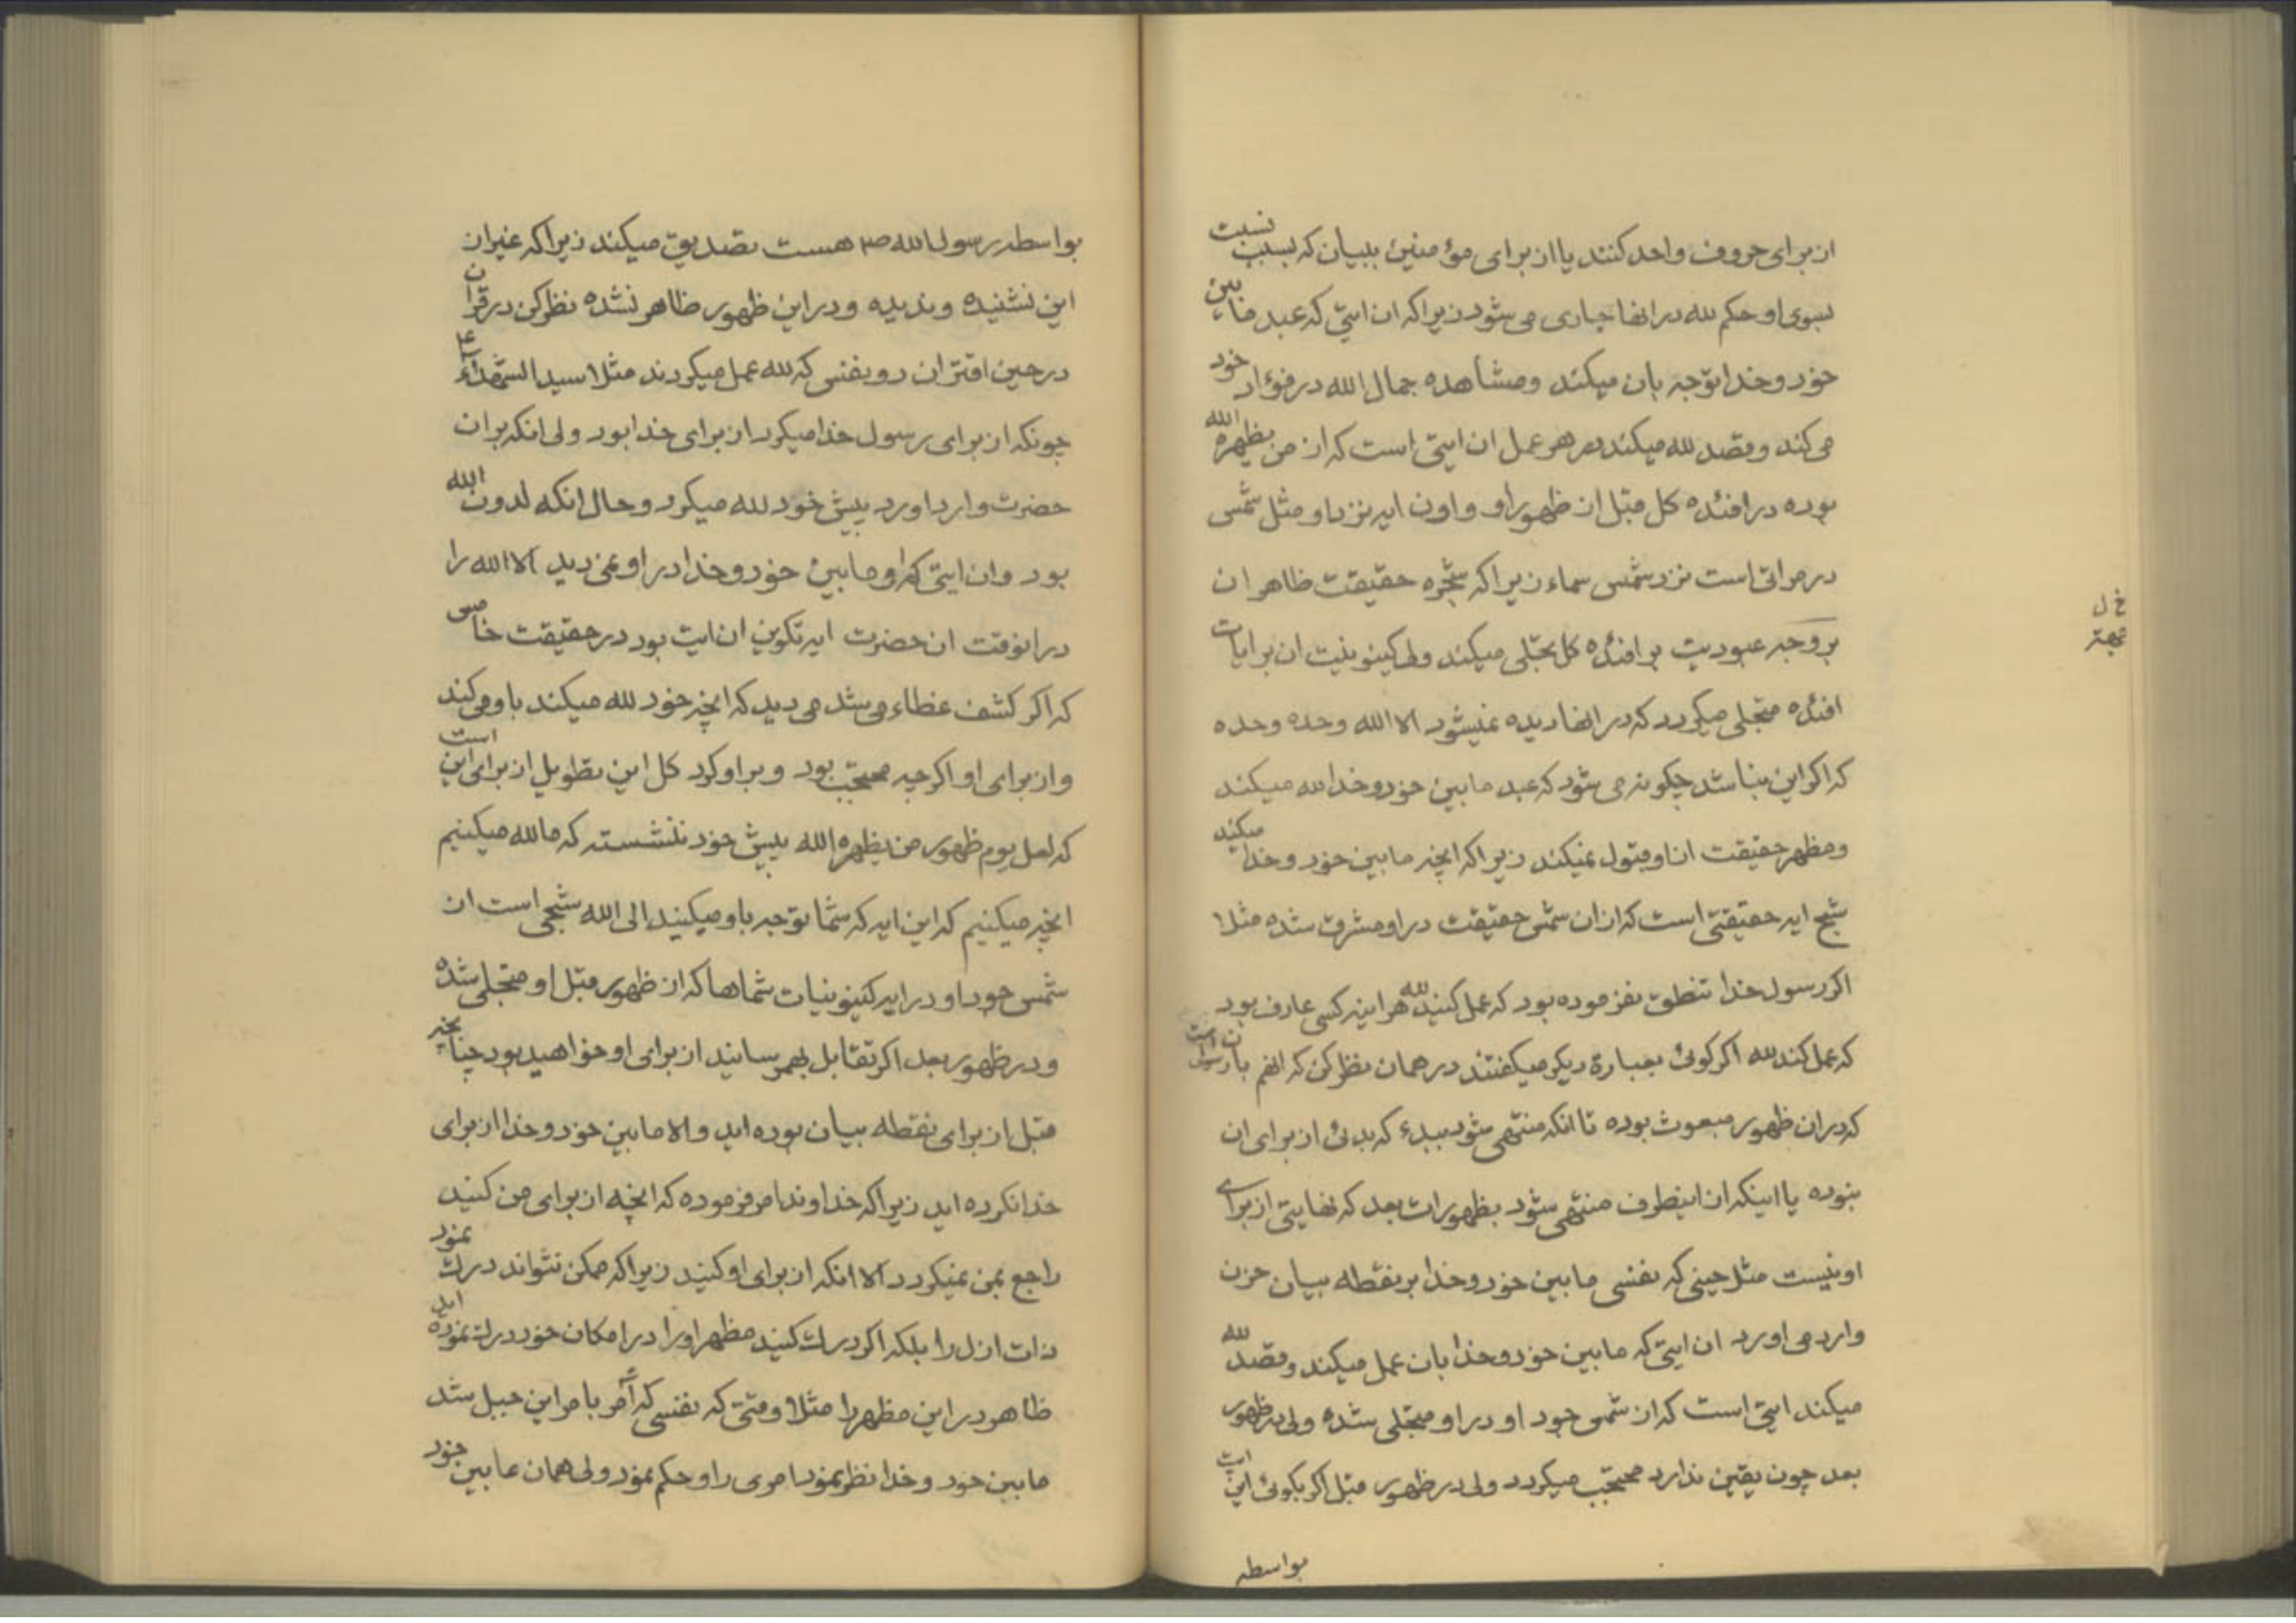 از برای حروف واحد کنند یا از برای مؤمنین ببیان که بسبب نسبت
بسوی او حکم لله در انها جاری می شود زیرا که ان ایتی که عبد مابین
خود و خدا توجه بان میکند و مشاهده جمال الله در فؤاد خود
می کند و قصد لله میکند در هر عمل ان ایتی است که از من یظهره الله
بوده در افئده کل قبل از ظهور او و اون ایه نزد او مثل شمس
در مراتی است نزد شمس سماء زیرا که شجره حقیقت ظاهر ان
بر وجه عبودیت بر افئده کل تجلی میکند ولی کینونیت ان بر ایات
خ ل
بهتر
افئده متجلی میگردد که در انها دیده نمیشود الا الله وحده وحده
که اگر این نباشد چگونه می شود که عبد مابین خود و خدا لله میکند
و مظهر حقیقت ان او قبول نمیکند زیرا که انچه مابین خود و خدا میکند
شبح ایه حقیقتی است که از ان شمس حقیقت در او مشرق شده مثلا
اگر رسول خدا تنطق نفرموده بود که عمل کنید لله هراینه کسی عارف نبود
که عمل کند لله اگر گوئی بعبارة دیگر میگفتند در همان نظر کن که انهم بان رسول است
که در ان ظهور مبعوث بوده تا انکه منتهی شود ببدء که بدئی از برای ان
نبوده یا اینکه از اینطرف منتهی شود بظهورات بعد که نهایتی از برای
او نیست مثل حینی که نفسی مابین خود و خدا بر نقطه بیان حزن
وارد می اورد ان ایتی که مابین خود و خدا بان عمل میکند و قصد لله
میکند ایتی است که از شمس جود او در او متجلی شده ولی در ظهور
بعد چون یقین ندارد محتجب میگردد ولی در ظهور قبل اگر بگوئی این ایت
بواسطه
بواسطه رسول الله ص هست تصدیق میکند زیرا که غیر از
این نشنیده و ندیده و در این ظهور ظاهر نشده نظر کن در قران
در حین اقتران دو نفسی که لله عمل میکردند مثلا سید الشهداء ع
چونکه از برای رسول خدا میکرد از برای خدا بود ولی انکه بر ان
حضرت وارد اورد پیش خود لله میکرد و حال انکه لدون الله
بود و ان ایتی که او مابین خود و خدا در او نمی دید الا الله را
در انوقت ان حضرت ایه تکوین ان ایت بود در حقیقت خامس
که اگر کشف غطاء می شد می دید که انچه خود لله میکند باو می کند
و از برای او اگرچه محتجب بود و بر او کرد کل این تطویل از برای این است
که لعل یوم ظهور من یظهره الله پیش خود ننشسته که ما لله میکنیم
انچه میکنیم که این ایه که شما توجه باو میکنید الی الله شبحی است از
شمس جود او در ایه کینونیات شماها که از ظهور قبل او متجلی شده
و در ظهور بعد اگر تقابل بهم رسانید از برای او خواهید بود چنانچه
قبل از برای نقطه بیان بوده اید و الا مابین خود و خدا از برای
خدا نکرده اید زیرا که خداوند امر فرموده که انچه از برای من کنید
راجع بمن نمیگردد الا انکه از برای او کنید زیرا که ممکن نتواند درک نمود
ذات ازل را بلکه اگر درک کنید مظهر او را در امکان خود درک نموده اید
ظاهر در این مظهر را مثلا وقتی که نفسی که آمر بامر این جبل شد
مابین خود و خدا نظر نمود امری را و حکم نمود ولی همان مابین خود